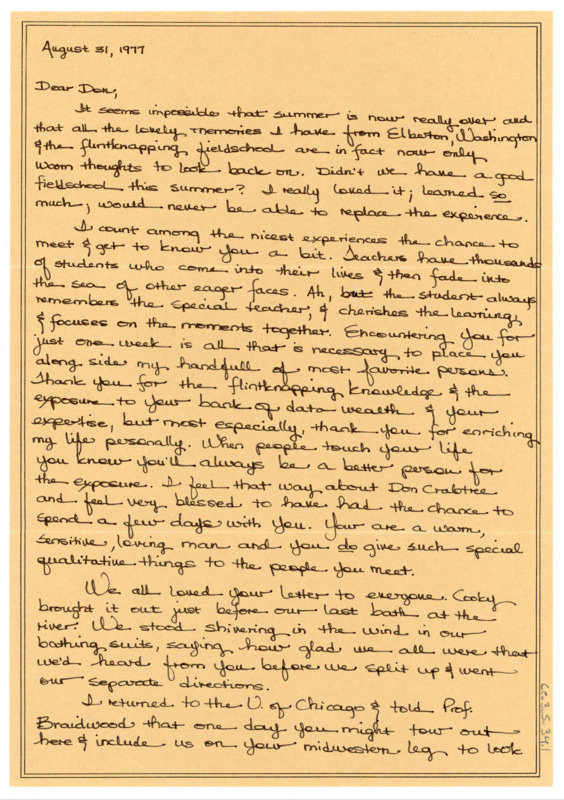 August 31, 1977
Dear Don,
It seems impossible that summer is now really over and
that all the lovely memories I have from Elberton, Washington
& the flintknapping fieldschool are in fact now only
warm thoughts to look back on. Didn't we have a good
fieldschool this summer? I really loved it; learned so
much; would never be able to replace the experience.
I count among the nicest experiences the chance to
meet & get to know you a bit. Teachers have thousands
of students who come into their lives & then fade into
the sea of other eager faces. Ah, but the student always
remembers the special teacher, & cherishes the learning,
& focuses on the moments together. Encountering you for
just one week is all that is necessary to place you
along side my handfull of most favorite persons.
Thank you for the flintknapping knowledge & the
exposure to your bank of data wealth & your
expertise, but most especially, thank you for enriching
my life personally. When people touch your life
you know you'll always be a better person for
the exposure. I feel that way about Don Crabtree
and feel very blessed to have had the chance to
spend a few days with you. Your are a warm,
sensitive, loving man and you do give such special
qualitative things to the people you meet.
We all loved your letter to everyone. Cooky
brought it out just before our last bath at the
river. We stood shivering in the wind in our
bathing suits, saying how glad we all were that
we'd heard from you before we split up & went
our separate directions.
I returned to the U. of Chicago & told Prof.
Braidwood that one day you might tow out
here & include us on your midwestern leg to look
CC.3.5.34.1